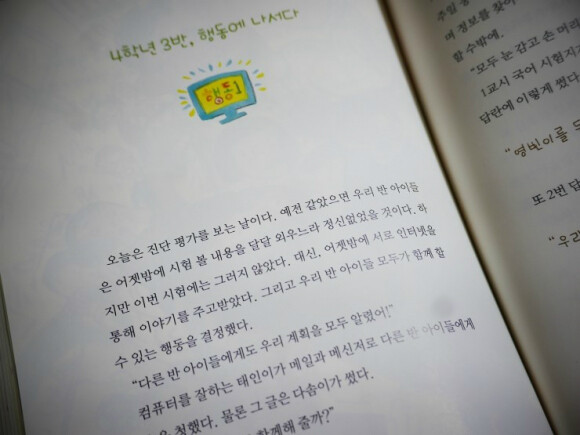 4학년 3반, 행동에 나서다
행동1
오늘은 진단 평가를 보는 날이다. 예전 같았으면 우리 반 아이들
은 어젯밤에 시험 볼 내용을 달달 외우느라 정신없었을 것이다. 하
지만 이번 시험에는 그러지 않았다. 대신, 어젯밤에 서로 인터넷을
통해 이야기를 주고받았다. 그리고 우리 반 아이들 모두가 함께 할
수 있는 행동을 결정했다.
“다른 반 아이들에게도 우리 계획을 모두 알렸어!”
컴퓨터를 잘하는 태인이가 메일과 메신저로 다른 반 아이들에게
청했다. 물론 그 글은 다솜이가 썼다.
함께해 줄까?”
주일 동
며 정보를 찾아
할 수밖에.
“모두 눈 감고 손 머리
1교시 국어 시험지
답란에 이렇게 썼다
“영빈이를 도
또 2번 답
“우리